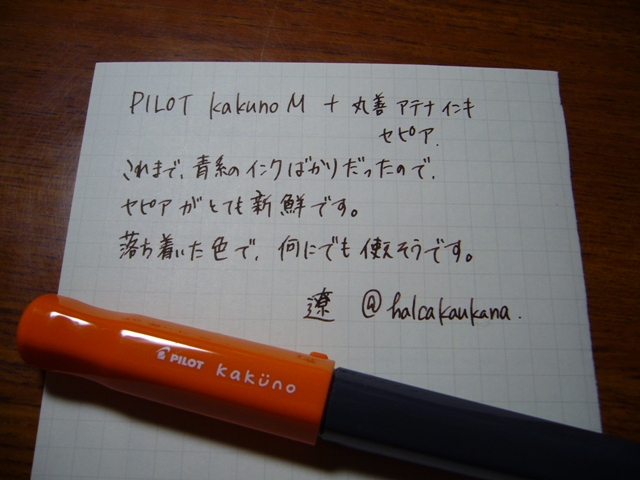 PILOT kakuno M + 丸善 アテナ インキ
セピア.
これまで、青系のインクばかりだったので、
セピアがとても新鮮です。
落ち着いた色で、何にでも使えそうです。
遼 @halcakaukana.
PILOT kaküno